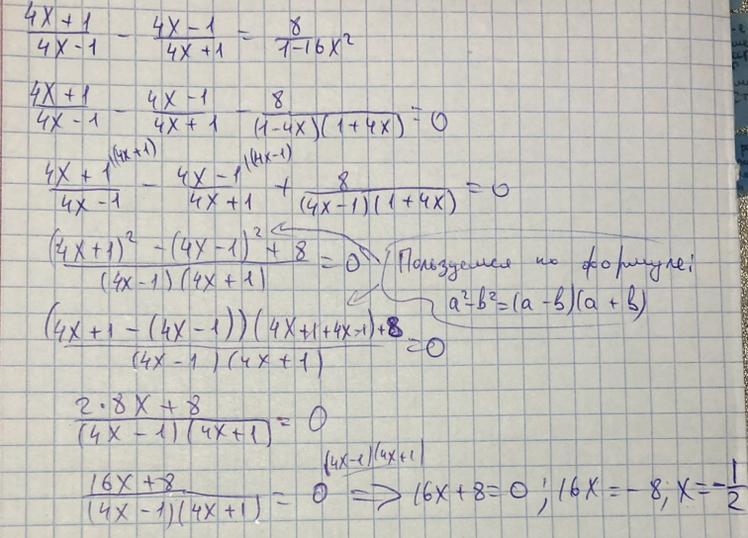 (4x+1)/(4x-1) - (4x-1)/(4x+1) = 8/(1-16x²)
(4x+1)/(4x-1) - (4x-1)/(4x+1) - 8/((1-4x)(1+4x)) = 0
(4x+1)/(4x-1) |(4x+1) - (4x-1)/(4x+1) |(4x-1) + 8/((4x-1)(1+4x)) = 0
((4x+1)² - (4x-1)² + 8)/((4x-1)(4x+1)) = 0
Пользуемся по формуле:
a²-b²=(a-b)(a+b)
((4x+1-(4x-1))(4x+1+4x-1)+8)/((4x-1)(4x+1)) = 0
(2·8x+8)/((4x-1)(4x+1)) = 0
(16x+8)/((4x-1)(4x+1)) = 0 |(4x-1)(4x+1) => 16x+8=0; 16x=-8; x=-1/2